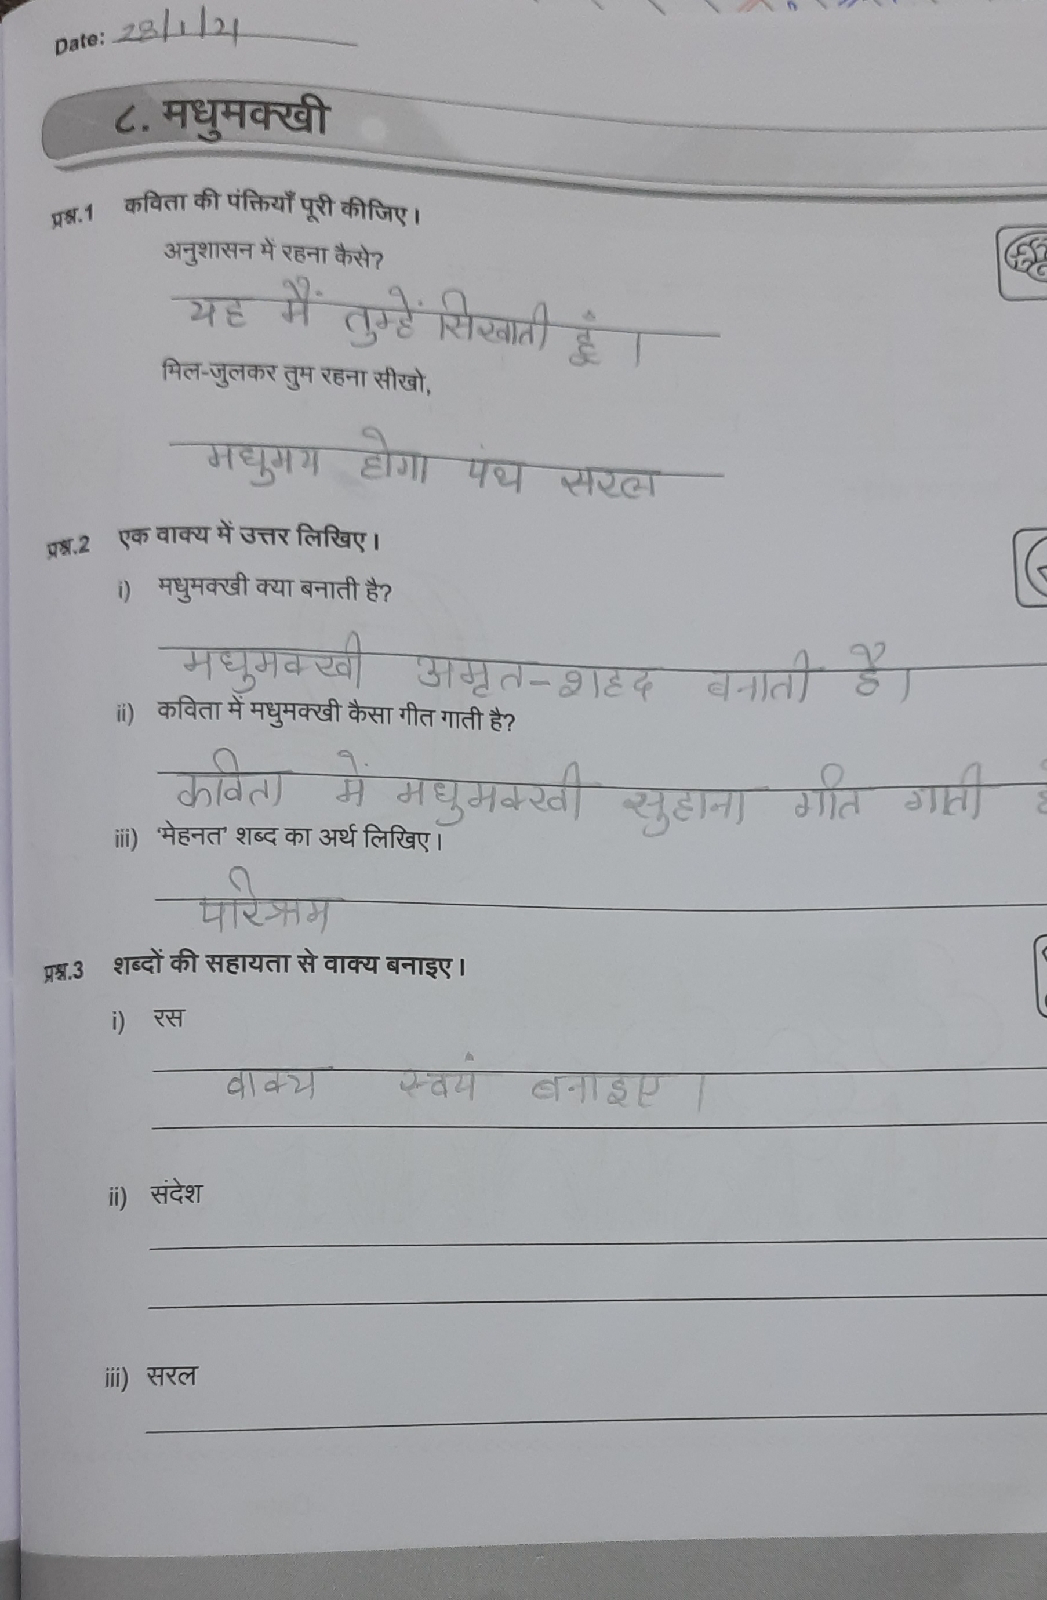 Date: 28/1/21
८. मधुमक्खी
प्रश्न.1 कविता की पंक्तियाँ पूरी कीजिए।
अनुशासन में रहना कैसे?
यह मैं तुम्हें सिखाती हूं।
मिल-जुलकर तुम रहना सीखो,
मधुमय होगा पंथ सरल
प्रश्न.2 एक वाक्य में उत्तर लिखिए।
i) मधुमक्खी क्या बनाती है?
मधुमक्खी अमृत-शहद बनाती है।
ii) कविता में मधुमक्खी कैसा गीत गाती है?
कविता में मधुमक्खी सुहाना गीत गाती
iii) 'मेहनत' शब्द का अर्थ लिखिए।
परिश्रम
प्रश्न.3 शब्दों की सहायता से वाक्य बनाइए।
i) रस
वाक्य स्वयं बनाइए।
ii) संदेश
iii) सरल